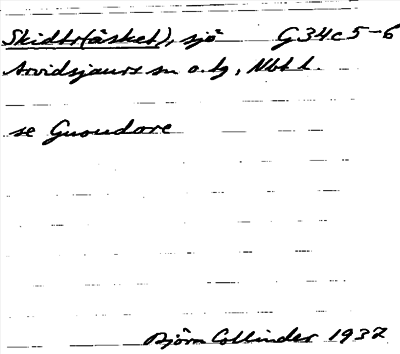 Skidtr(äsket), sjö G34c5-6
Arvidsjaurs sn o. tg, Nbt l.
se Guoudare
Björn Collinder 1937